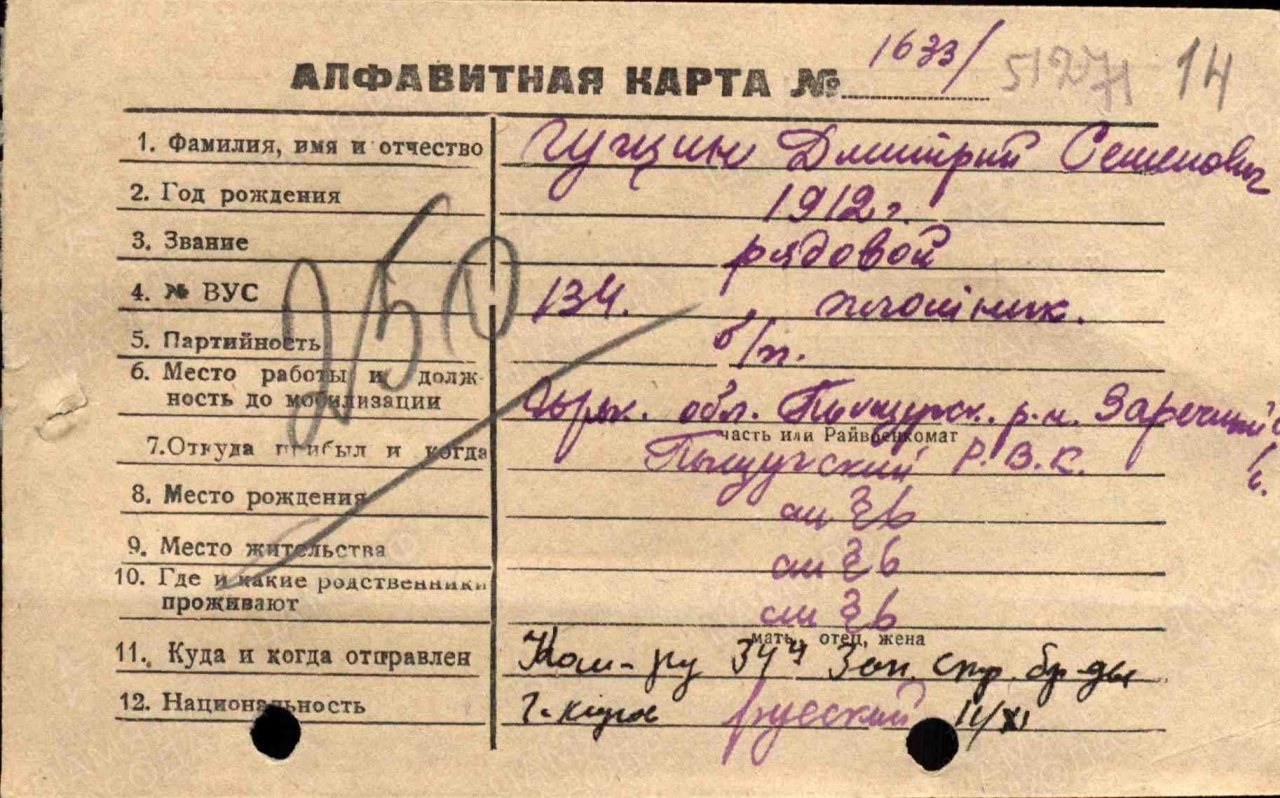 АЛФАВИТНАЯ КАРТА № 1633/ 51271 14
1. Фамилия, имя и отчество Гущин Дмитрий Семенович
2. Год рождения 1912 г.
3. Звание рядовой
4. № ВУС 134. плотник.
250
5. Партийность б/п.
6. Место работы и долж-
ность до мобилизации обл. Пыщугск. р-н. Заречный
часть или Райвоенкомат
7. Откуда прибыл и когда Пыщугский Р.В.К.
8. Место рождения
9. Место жительства
10. Где и какие родственники
проживают
мать, отец, жена
11. Куда и когда отправлен Ком-ру 34й Зап. стр. бр-ды
12. Национальность русский